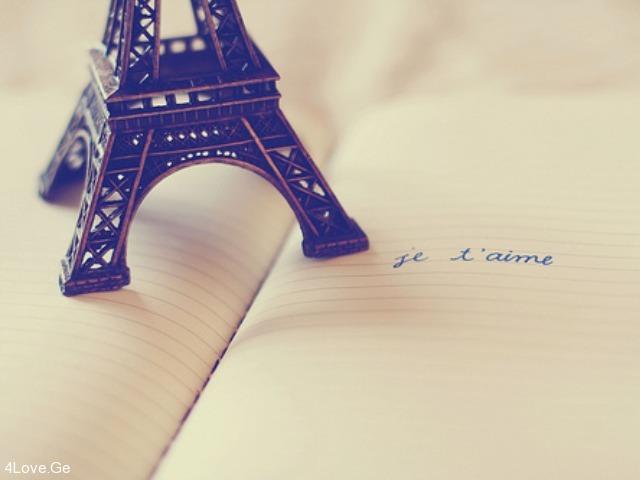 je t'aime
4Love.Ge